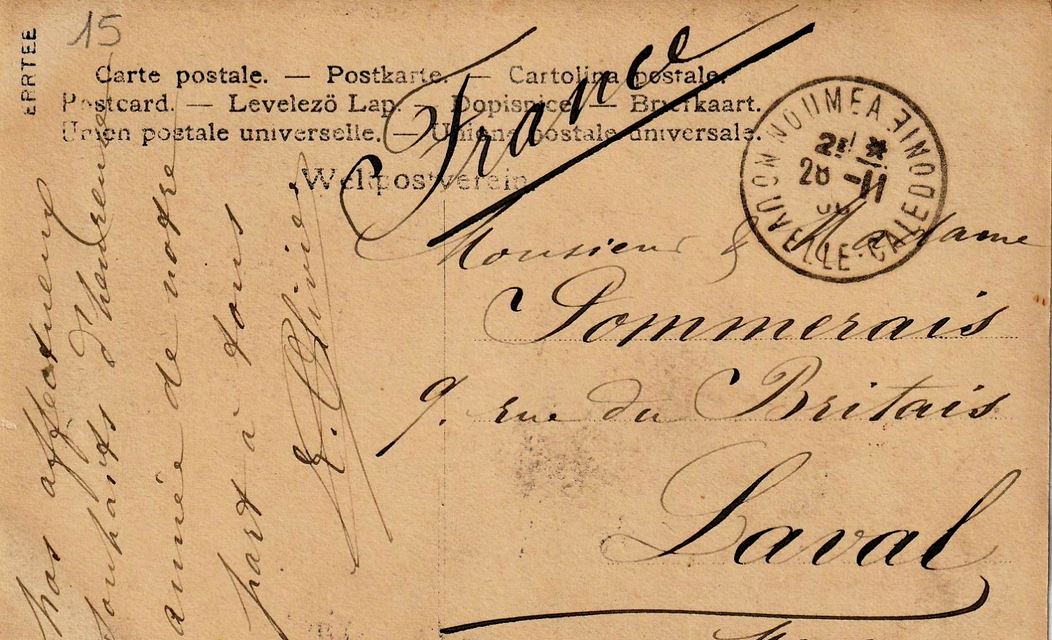 15
Carte postale. — Postkarte. — Cartolina postale.
Postcard. — Levelezö Lap. — Dopisnice — Briefkaart.
Union postale universelle. — Unione postale universale.
Weltpostverein.
France
NOUMEA NOUVELLE-CALEDONIE
28 -11
Monsieur & Madame
Pommerais
9. rue du Britais
Laval
nos affectueux
souhaits d'heureuse
année de notre
part à tous
E. Olivier